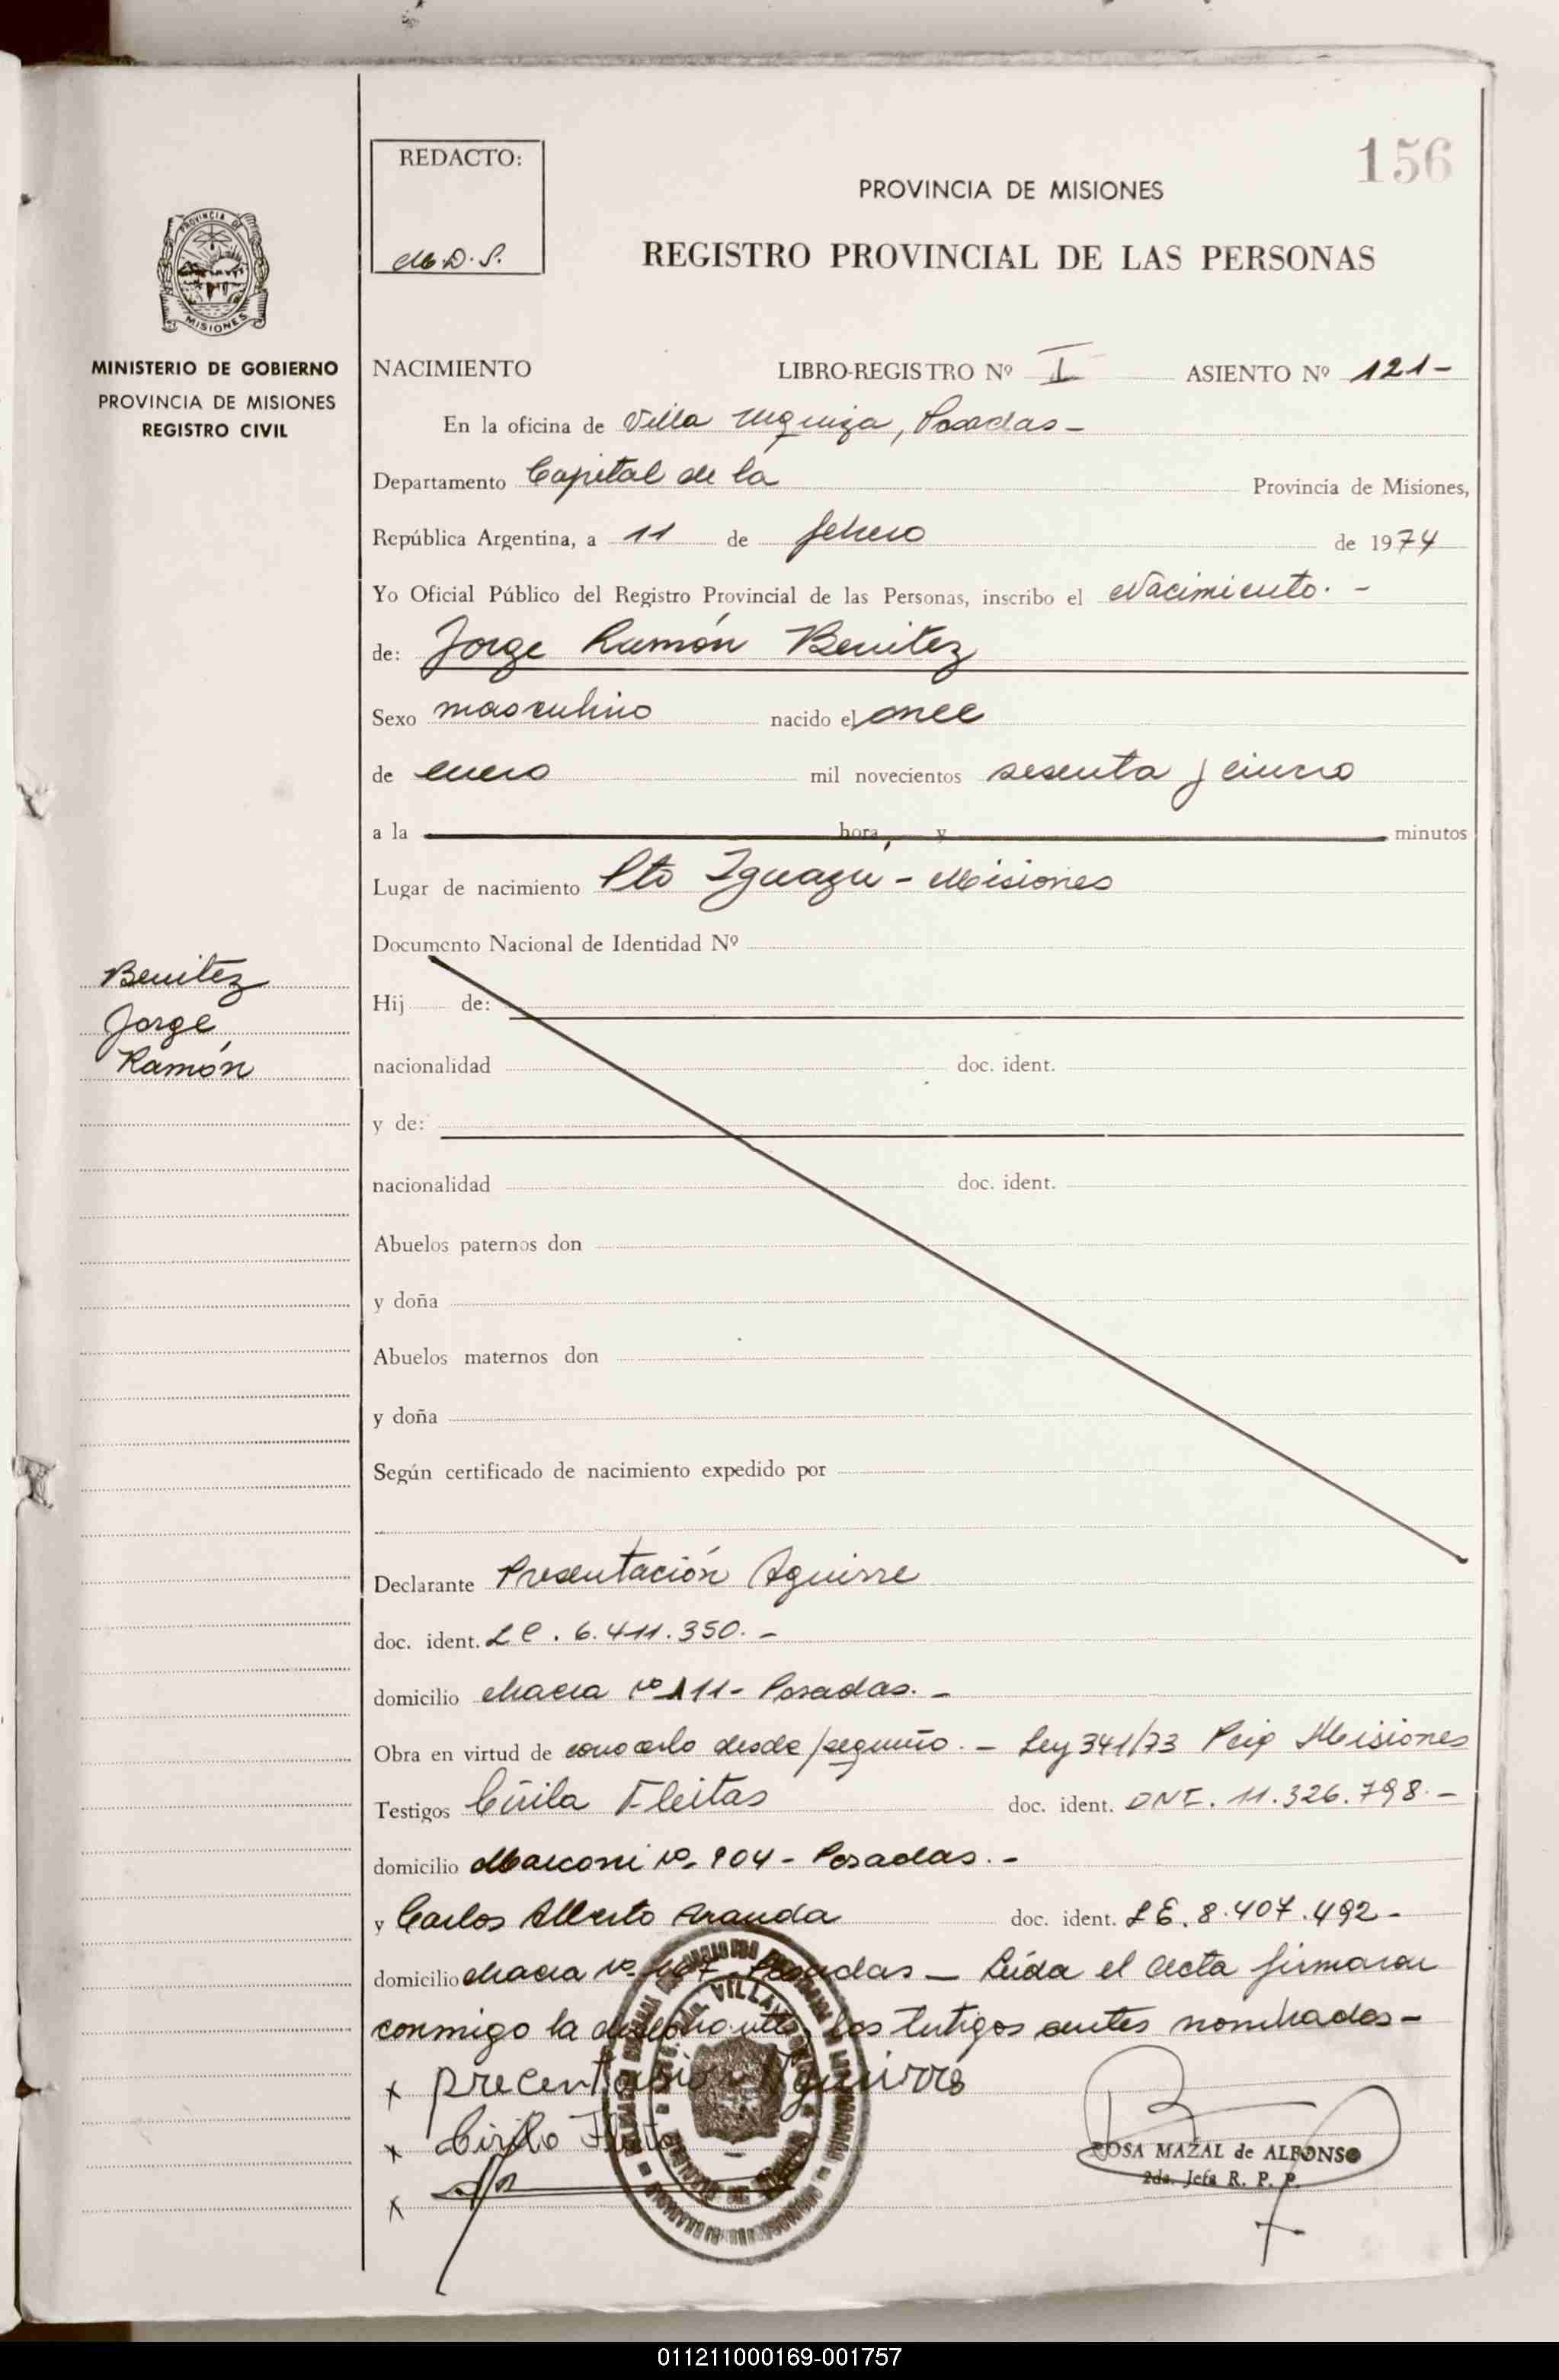 156
REDACTO:
M.D.S.
PROVINCIA DE MISIONES
REGISTRO PROVINCIAL DE LAS PERSONAS
PROVINCIA DE
MISIONES
MINISTERIO DE GOBIERNO
PROVINCIA DE MISIONES
REGISTRO CIVIL
NACIMIENTO LIBRO-REGISTRO Nº I ASIENTO Nº 121-
En la oficina de Villa Urquiza, Posadas-
Departamento Capital de la Provincia de Misiones,
República Argentina, a 11 de febrero de 1974
Yo Oficial Público del Registro Provincial de las Personas, inscribo el Nacimiento. -
de: Jorge Ramón Benitez
Sexo masculino nacido el once
de enero mil novecientos sesenta y cinco
a la hora y minutos
Lugar de nacimiento Pto Iguazú - Misiones
Documento Nacional de Identidad Nº
Benitez
Jorge
Ramón
Hij de:
nacionalidad doc. ident.
y de:
nacionalidad doc. ident.
Abuelos paternos don
y doña
Abuelos maternos don
y doña
Según certificado de nacimiento expedido por
Declarante Presentación Aguirre
doc. ident. L C. 6.411.350. -
domicilio Chacra Nº 111- Posadas. -
Obra en virtud de conocerlo desde pequeño. - Ley 341/73 Misiones
Testigos Cirila Fleitas doc. ident. DNI. 11.326.798. -
domicilio Marconi Nº 904 - Posadas. -
y Carlos Alberto Aranda doc. ident. L E. 8.407.492 -
domicilio Chacra Nº Posadas - Leída el acta firmaran
conmigo la declarante y los testigos antes nombrados -
x precentasion Aguirre
x Cirila Fleita
x
ROSA MAZAL de ALFONSO
2da. Jefa R. P. P.
011211000169-001757